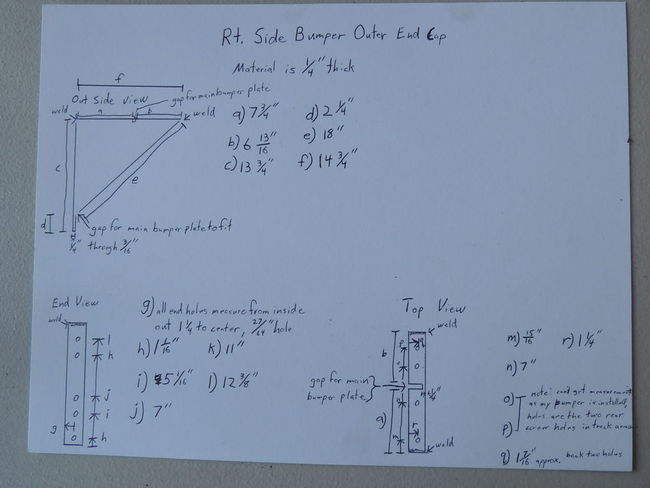 Rt. Side Bumper Outer End Cap
Material is 1/4" thick
f
Out Side View
gap for main bumper plate
weld
a
b
weld
a) 7 3/4"
d) 2 1/4"
b) 6 13/16"
e) 18"
c) 13 3/4"
f) 14 3/4"
c
e
d
gap for main bumper plate to fit
1/4"
through 3/16"
End View
weld
g) all end holes measure from inside
out 1 1/4 to center, 27/64" hole
h) 1 1/16"
k) 11"
i) 5 1/16"
l) 12 3/8"
j) 7"
l
k
j
i
g
h
Top View
weld
b
gap for main
bumper plate
a)
m
r
weld
m) 15/16"
r) 1 1/4"
n) 7"
o)
note: could get measurements
as my bumper is installed,
holes are the two rear
p)
holes in
q) 1 7/16" approx. back two holes